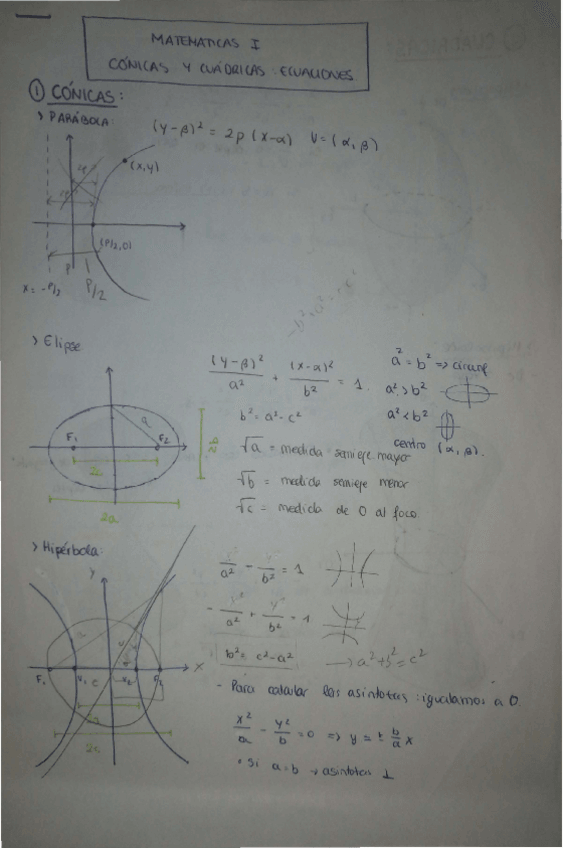 MATEMATICAS I
CÓNICAS Y CUÁDRICAS: ECUACIONES
① CÓNICAS:
> PARÁBOLA:
(y-β)² = 2p (x-α) V = (α, β)
(x,y)
(P/2,0)
P
x = -P/2
P/2
> Elipse
(y-β)²/a² + (x-α)²/b² = 1.
a² = b² =>
a² > b²
a² < b²
centro (α, β).
b² = a² - c²
a
F₁
F₂
2c
2b
2a
√a = medida semieje mayor
√b = medida semieje menor
√c = medida de 0 al foco.
> Hipérbola:
y
x
F₁
V₁
c
V₂
a
/a² - /b² = 1
- /a² + /b² = 1
b² = c² - a²
-> a² + b² = c²
- Para calcular las asíntotas: igualamos a 0
x²/a - y²/b = 0 => y = ± b/a x
• Si a = b -> asíntotas ⊥